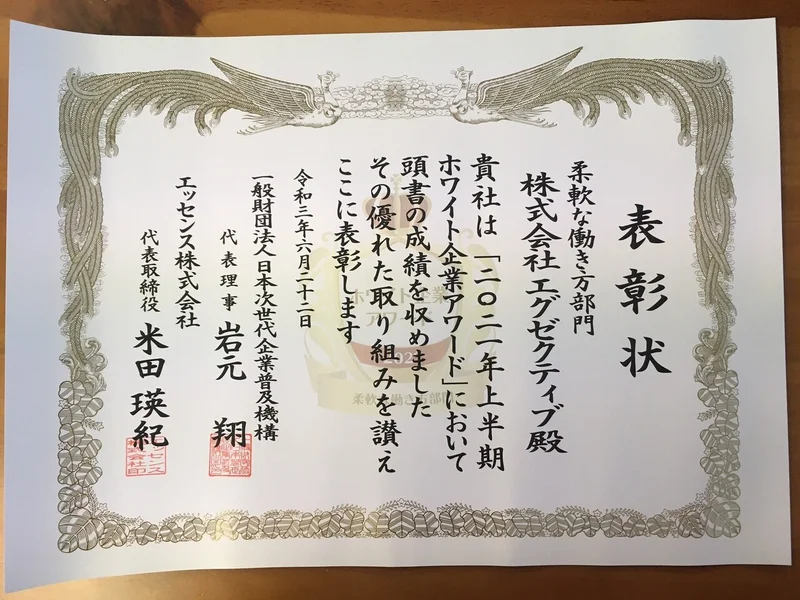 表彰状
柔軟な働き方部門
株式会社 エグゼクティブ 殿
貴社は「二〇二一年上半期
ホワイト企業アワード」において
頭書の成績を収めました
その優れた取り組みを讃え
ここに表彰します
令和三年六月二十二日
一般財団法人日本次世代企業普及機構
代表理事 岩元 翔
エッセンス株式会社
代表取締役 米田 瑛紀
ホワイト企業
アワード
柔軟な働き方部門